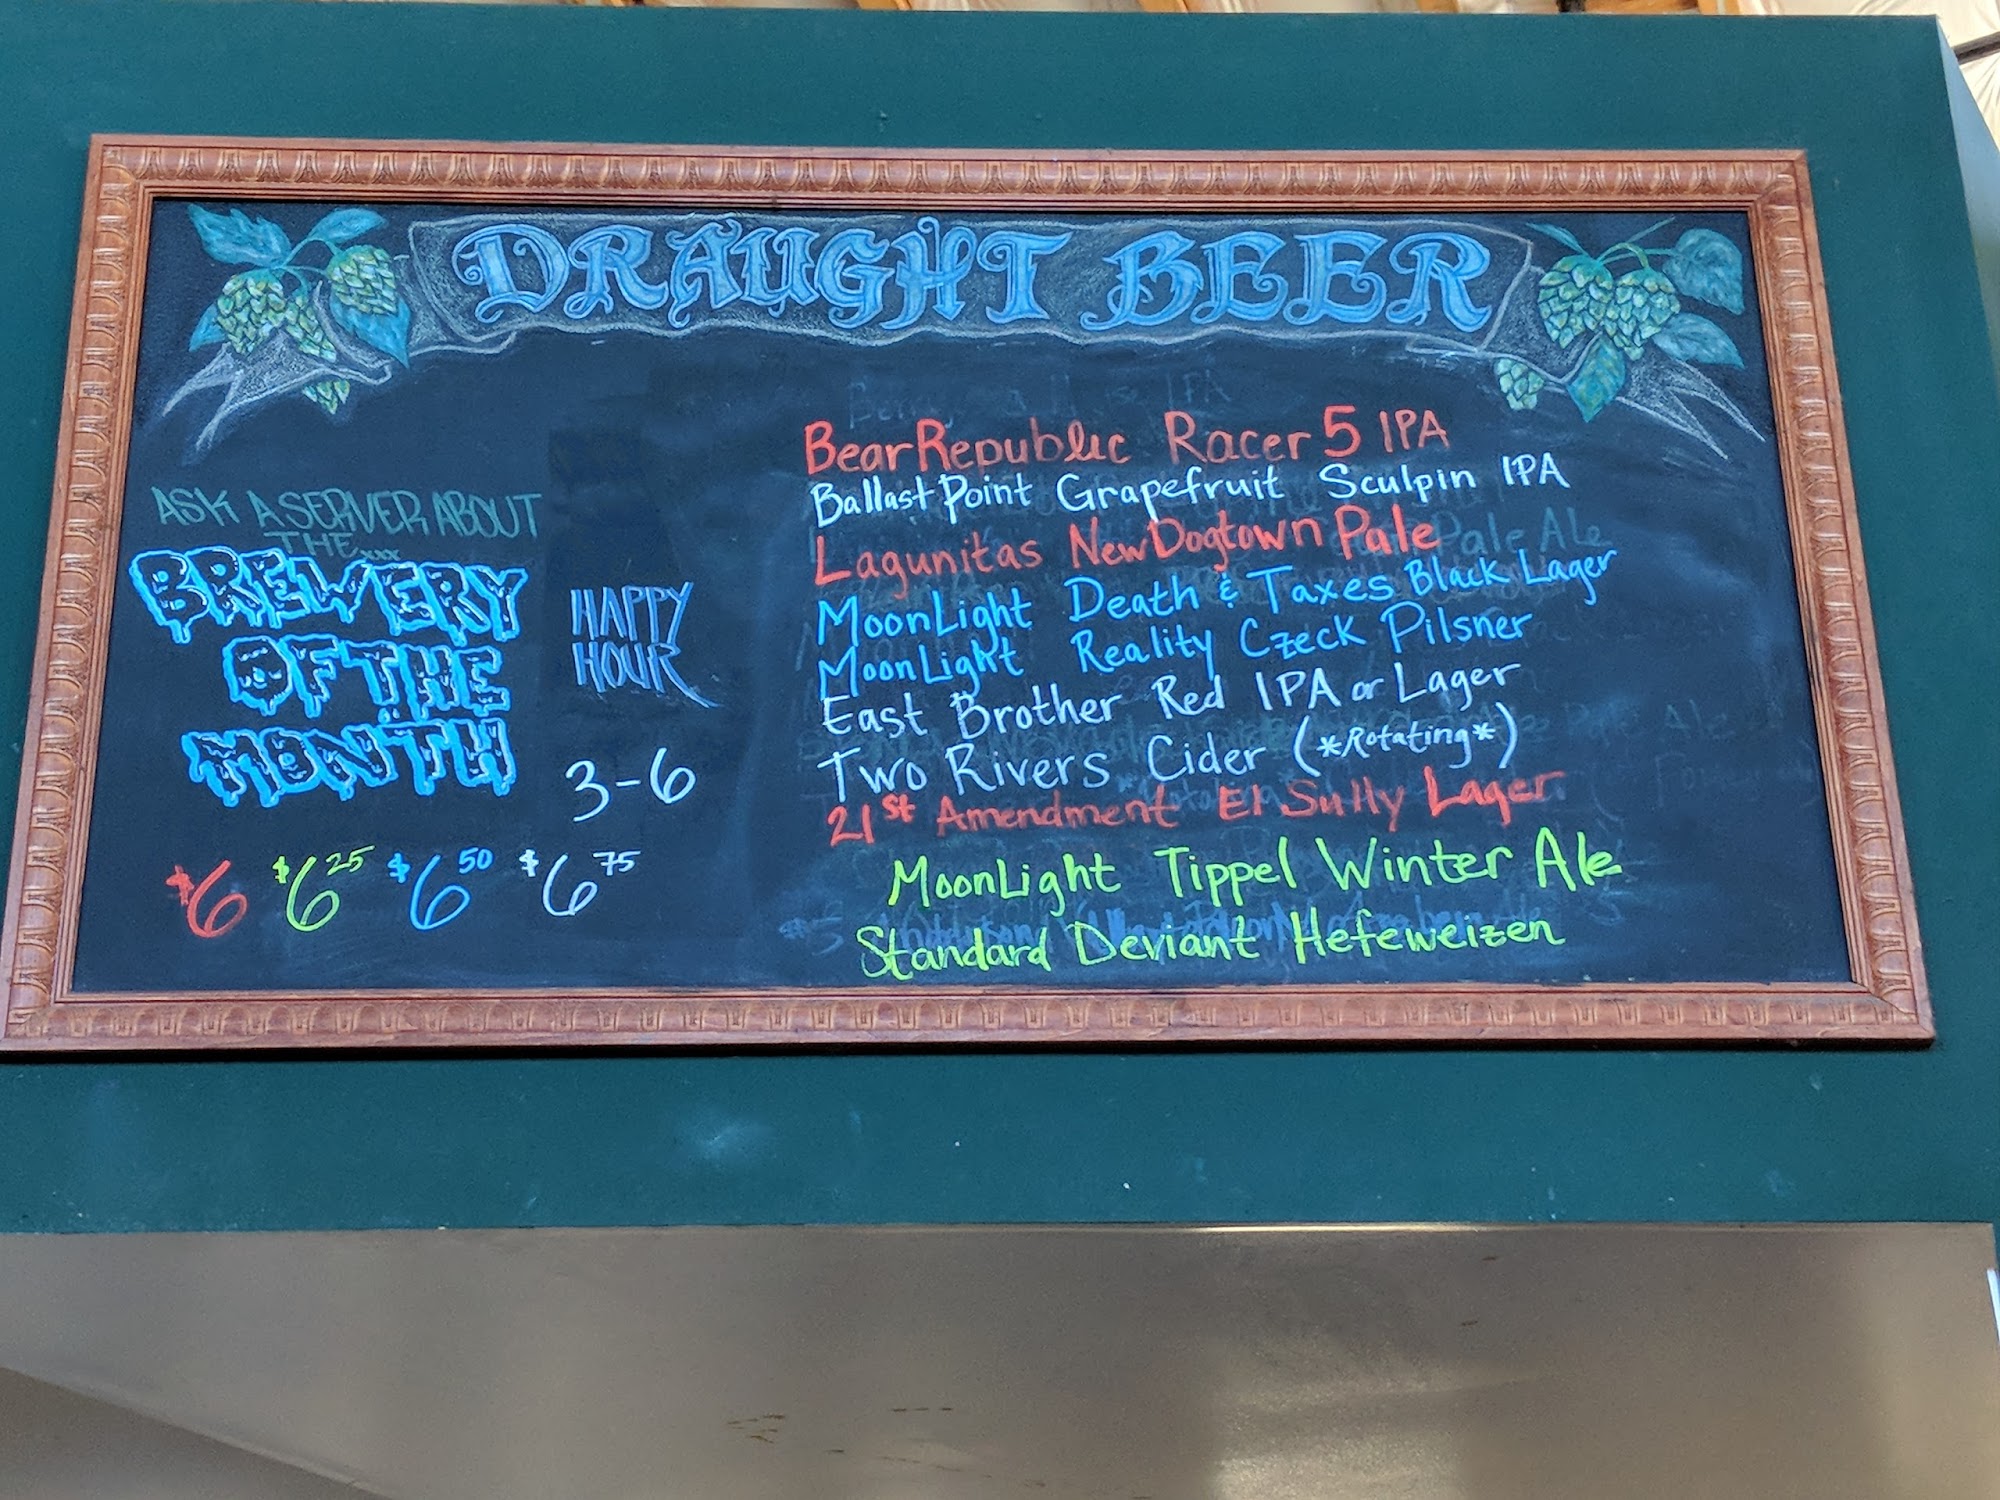 DRAUGHT BEER
ASK A SERVER ABOUT
THE...
BREWERY
OF THE
MONTH
HAPPY
HOUR
3-6
$6 $6 25 $6 50 $6 75
Bear Republic Racer 5 IPA
Ballast Point Grapefruit Sculpin IPA
Lagunitas New Dogtown Pale
MoonLight Death & Taxes Black Lager
MoonLight Reality Czeck Pilsner
East Brother Red IPA or Lager
Two Rivers Cider (*Rotating*)
21st Amendment El Sully Lager
MoonLight Tippel Winter Ale
Standard Deviant Hefeweizen